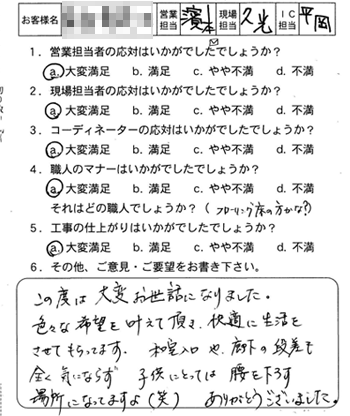 お客様名 営業担当 濱本 現場担当 久光 IC担当 平岡
1. 営業担当者の応対はいかがでしたでしょうか?
a. 大変満足 b. 満足 c. やや不満 d. 不満
2. 現場担当者の応対はいかがでしたでしょうか?
a. 大変満足 b. 満足 c. やや不満 d. 不満
3. コーディネーターの応対はいかがでしたでしょうか?
a. 大変満足 b. 満足 c. やや不満 d. 不満
4. 職人のマナーはいかがでしたでしょうか?
a. 大変満足 b. 満足 c. やや不満 d. 不満
それはどの職人でしょうか? (フローリング床の方かな?)
5. 工事の仕上がりはいかがでしたでしょうか?
a. 大変満足 b. 満足 c. やや不満 d. 不満
6. その他、ご意見・ご要望をお書き下さい。
この度は大変お世話になりました。
色々な希望を叶えて頂き、快適に生活を
させてもらってます。和室入口や、廊下の段差も
全く気にならず 子供にとっては 腰を下ろす
場所になってますよ(笑) ありがとうございました。